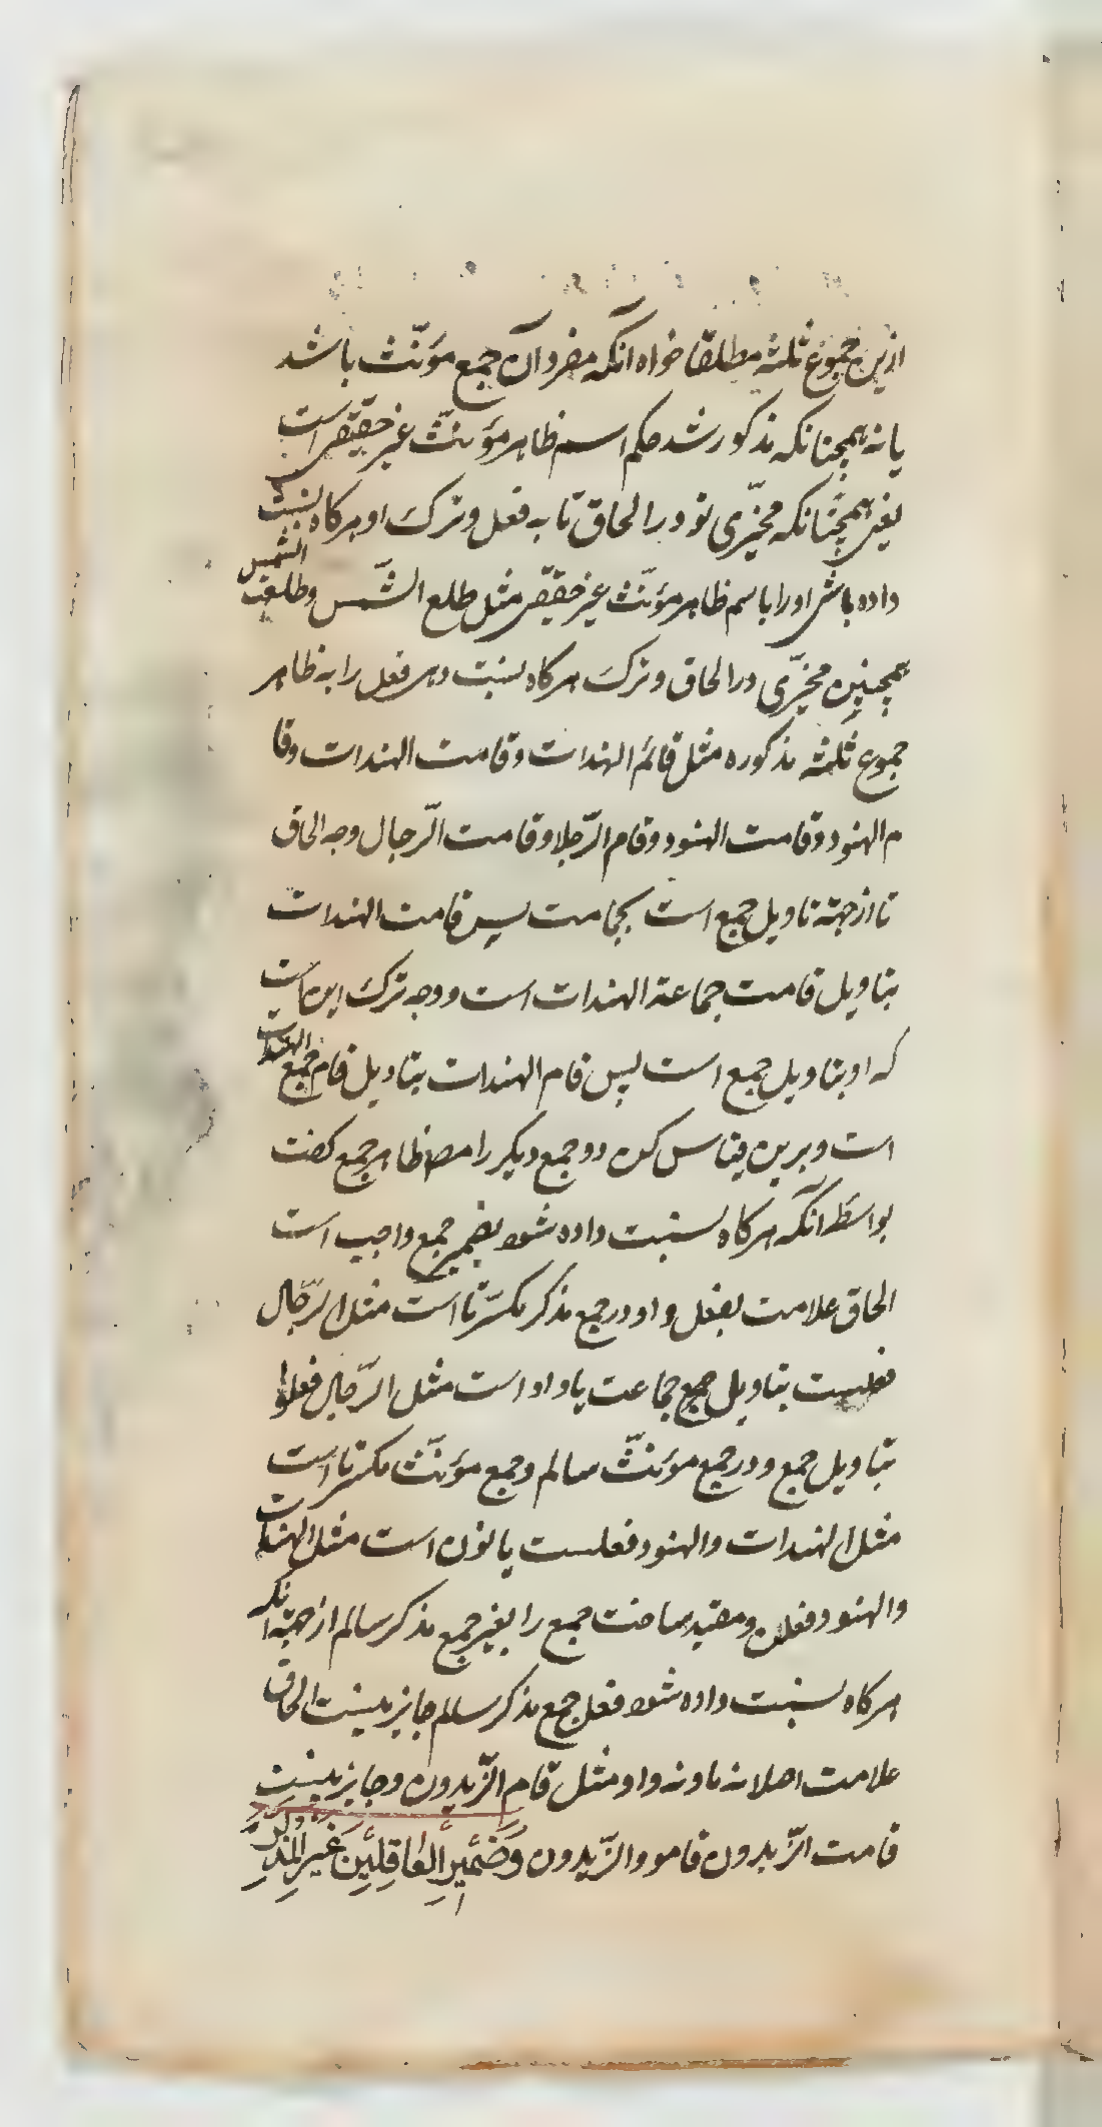 ازین جموع ثلثه مطلقا خواه آنکه مفرد آن جمع مؤنّث باشد
یا نه همچنانکه مذکور شد حکم اسم ظاهر مؤنّث غیر حقیقی است
یعنی همچنانکه مخیّری تو در الحاق تا به فعل و ترک او هرکاه نسبت
داده باشی او را باسم ظاهر مؤنّث غیر حقیقی مثل طلع الشّمس وطلعت الشمس
همچنین مخیّری در الحاق و ترک هرکاه نسبت دهی فعل را به ظاهر
جموع ثلثه مذکوره مثل قائم الهندات وقامت الهندات وقا
م الهنود وقامت الهنود وقام الرّجلا وقامت الرّجال وجه الحاق
تا از جهته تاویل جمع است بجامت پس قامت الهندات
بتاویل قامت جماعة الهندات است ووجه ترک این است
که او بتاویل جمع است پس قام الهندات بتاویل قام جمع الهندات
است وبرین قیاس کن دو جمع دیکر را مص ظاهر جمع کفت
بواسطه آنکه هرکاه نسبت داده شود بضمیر جمع واجب است
الحاق علامت بفعل واو در جمع مذکر مکسّر تا است مثل الرّجال
فعلست بتاویل جمع جماعت یا واو است مثل الرّجال فعلوا
بتاویل جمع ودر جمع مؤنّث سالم وجمع مؤنّث مکسر تا است
مثل الهندات والهنود فعلست یا نون است مثل الهندات
والهنود فعلن ومقید ساخت جمع را بغیر جمع مذکر سالم از جهته آنکه
هرکاه نسبت داده شود فعل جمع مذکر سالم جایز نیست الحاق
علامت اصلا نه تا ونه واو مثل قام الزّیدون وجایز نیست
قامت الزّیدون قامو والزّیدون وَضَمِیرِ العَاقِلِینَ غَیرِ المذکرِ